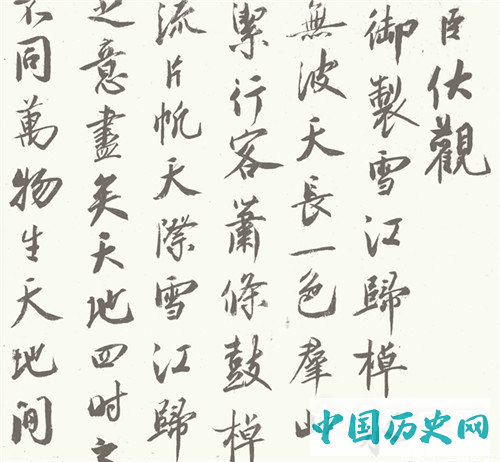 臣伏觀
御製雪江歸棹
無波天長一色羣山
潔行客蕭條鼓棹
流片帆天際雪江歸
之意盡矣天地四時之
不同萬物生天地間
中国历史网